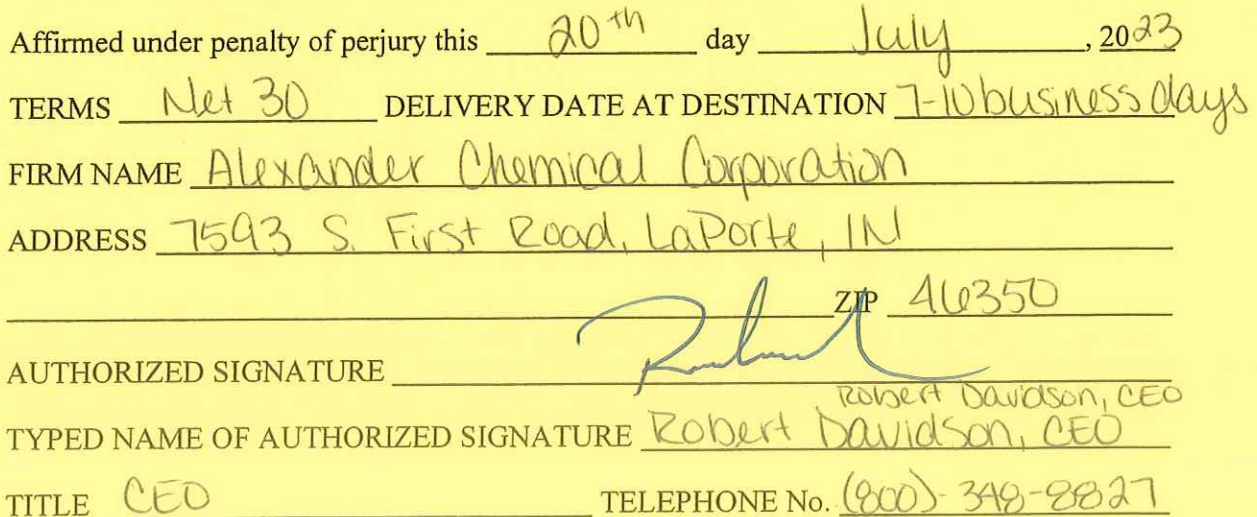 Affirmed under penalty of perjury this 20th day July, 2023
TERMS Net 30 DELIVERY DATE AT DESTINATION 7-10 business days
FIRM NAME Alexander Chemical Corporation
ADDRESS 7593 S. First Road, LaPorte, IN
ZIP 46350
AUTHORIZED SIGNATURE
Robert Davidson, CEO
TYPED NAME OF AUTHORIZED SIGNATURE Robert Davidson, CEO
TITLE CEO TELEPHONE No. (800)-348-8827